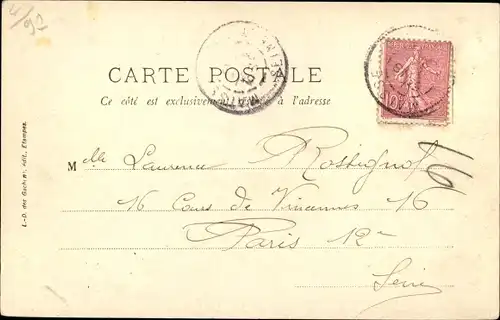 CARTE POSTALE
Ce côté est exclusivement à l'adresse
Mlle Laurence Rossignol
16 Cours de Vincennes 16
Paris 12e
Seine
L.-D. des Gachons, édit., Etampes
10